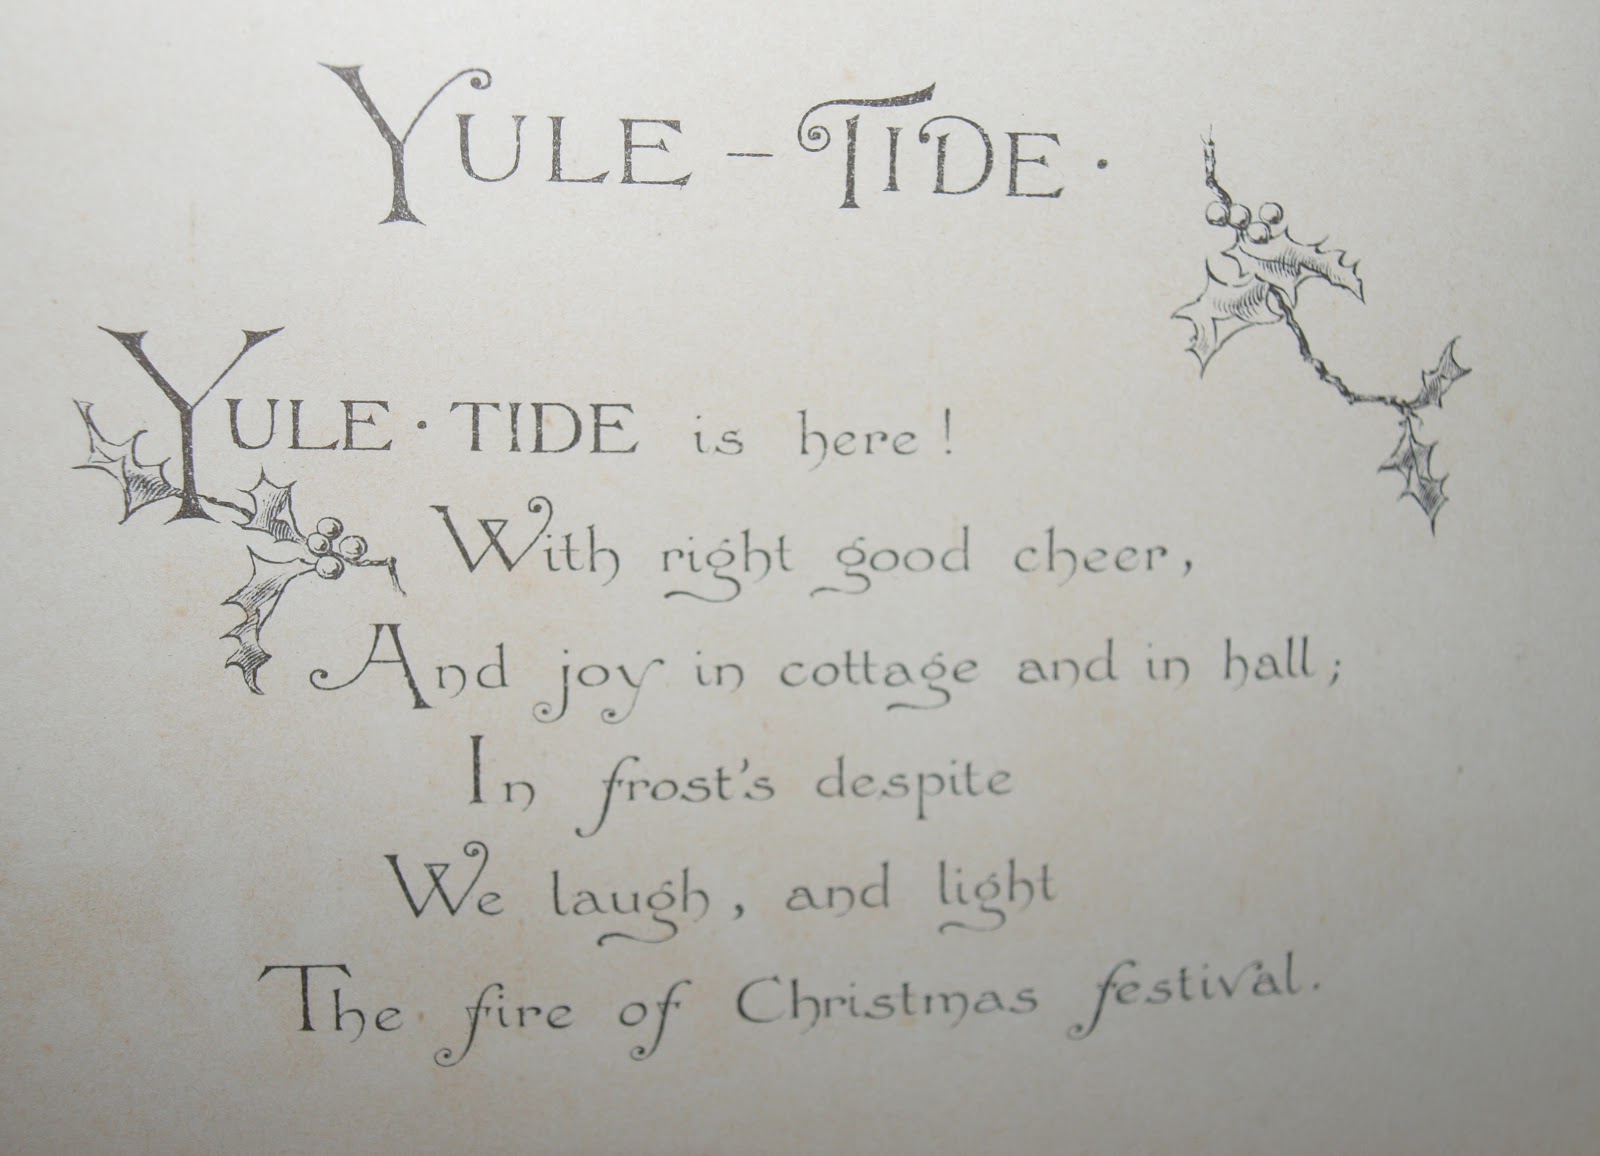 YULE-TIDE.
YULE·TIDE is here!
With right good cheer,
And joy in cottage and in hall;
In frost's despite
We laugh, and light
The fire of Christmas festival.